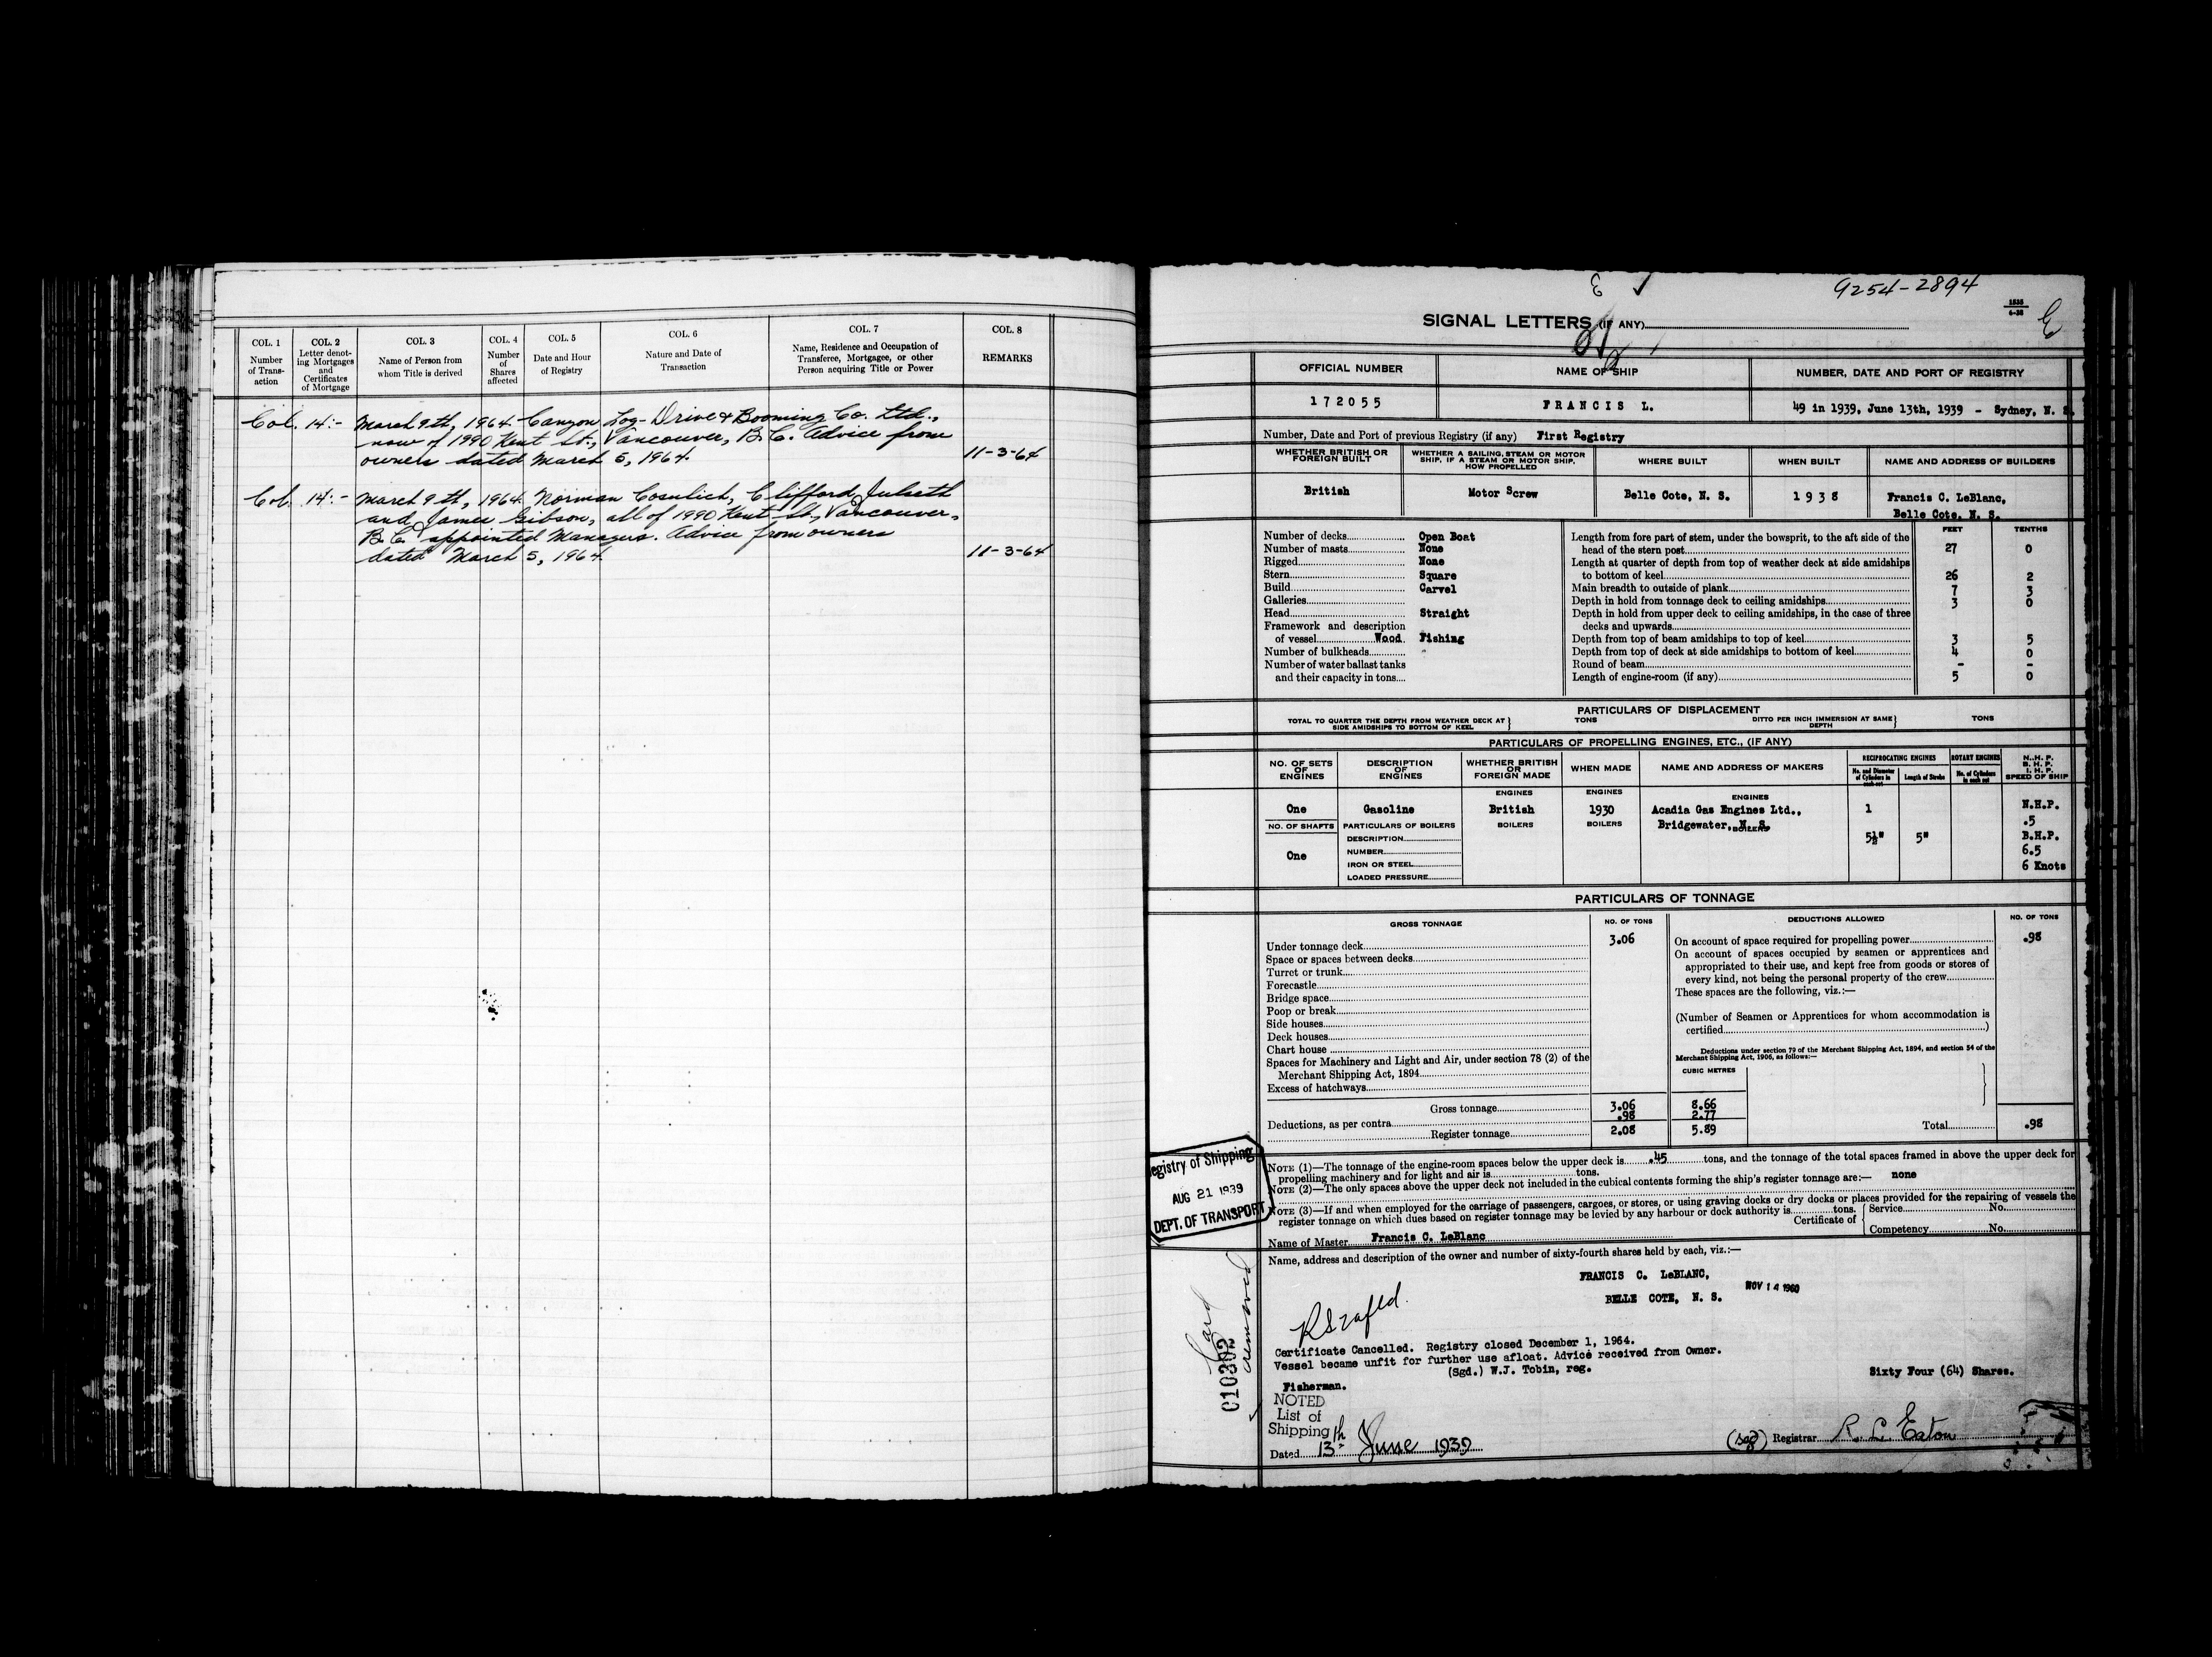 COL. 1
Number
of Trans-
action
COL. 2
Letter denot-
ing Mortgages
and
Certificates
of Mortgage
COL. 3
Name of Person from
whom Title is derived
COL. 4
Number
of
Shares
affected
COL. 5
Date and Hour
of Registry
COL. 6
Nature and Date of
Transaction
COL. 7
Name, Residence and Occupation of
Transferee, Mortgagee, or other
Person acquiring Title or Power
COL. 8
REMARKS
Col. 14:- March 9th, 1964 Canyon Log Drive & Booming Co. Ltd.,
now of 1990 Kent St., Vancouver, B.C. Advice from
owners dated March 5, 1964. 11-3-64
Col. 14:- March 9th, 1964 Norman Cosulich, Clifford Julseth
and James Gibson, all of 1990 Kent St., Vancouver,
B.C. appointed Managers. Advice from owners
dated March 5, 1964. 11-3-64
9254-2894
SIGNAL LETTERS (IF ANY)
OFFICIAL NUMBER NAME OF SHIP NUMBER, DATE AND PORT OF REGISTRY
172055 FRANCIS L. 49 in 1939, June 13th, 1939 - Sydney, N. S.
Number, Date and Port of previous Registry (if any) First Registry
WHETHER BRITISH OR
FOREIGN BUILT
WHETHER A SAILING, STEAM OR MOTOR
SHIP, IF A STEAM OR MOTOR SHIP,
HOW PROPELLED
WHERE BUILT WHEN BUILT NAME AND ADDRESS OF BUILDERS
British Motor Screw Belle Cote, N. S. 1938 Francis C. LeBlanc,
Belle Cote, N. S.
FEET TENTHS
Number of decks Open Boat
Number of masts None
Rigged None
Stern Square
Build Carvel
Galleries
Head Straight
Framework and description
of vessel Wood Fishing
Number of bulkheads
Number of water ballast tanks
and their capacity in tons
Length from fore part of stem, under the bowsprit, to the aft side of the
head of the stern post 27 0
Length at quarter of depth from top of weather deck at side amidships
to bottom of keel 26 2
Main breadth to outside of plank 7 3
Depth in hold from tonnage deck to ceiling amidships 3 0
Depth in hold from upper deck to ceiling amidships, in the case of three
decks and upwards
Depth from top of beam amidships to top of keel 3 5
Depth from top of deck at side amidships to bottom of keel 4 0
Round of beam - -
Length of engine-room (if any) 5 0
PARTICULARS OF DISPLACEMENT
TOTAL TO QUARTER THE DEPTH FROM WEATHER DECK AT
SIDE AMIDSHIPS TO BOTTOM OF KEEL
TONS
DITTO PER INCH IMMERSION AT SAME
DEPTH
TONS
PARTICULARS OF PROPELLING ENGINES, ETC., (IF ANY)
NO. OF SETS
OF
ENGINES
DESCRIPTION
OF
ENGINES
WHETHER BRITISH
OR
FOREIGN MADE
WHEN MADE
NAME AND ADDRESS OF MAKERS
RECIPROCATING ENGINES
No. and Diameter
of Cylinders in
each set
Length of Stroke
ROTARY ENGINES
No. of Cylinders
in each set
N.H.P.
B.H.P.
I.H.P.
SPEED OF SHIP
ENGINES ENGINES ENGINES
One Gasoline British 1930 Acadia Gas Engines Ltd., 1 N.H.P.
NO. OF SHAFTS PARTICULARS OF BOILERS BOILERS BOILERS Bridgewater, N. S. .5
BOILERS
DESCRIPTION 5½" 5" B.H.P.
One NUMBER 6.5
IRON OR STEEL 6 Knots
LOADED PRESSURE
PARTICULARS OF TONNAGE
GROSS TONNAGE NO. OF TONS DEDUCTIONS ALLOWED NO. OF TONS
Under tonnage deck 3.06
Space or spaces between decks
Turret or trunk
Forecastle
Bridge space
Poop or break
Side houses
Deck houses
Chart house
Spaces for Machinery and Light and Air, under section 78 (2) of the
Merchant Shipping Act, 1894
Excess of hatchways
On account of space required for propelling power .98
On account of spaces occupied by seamen or apprentices and
appropriated to their use, and kept free from goods or stores of
every kind, not being the personal property of the crew
These spaces are the following, viz.:—
(Number of Seamen or Apprentices for whom accommodation is
certified )
Deductions under section 79 of the Merchant Shipping Act, 1894, and section 54 of the
Merchant Shipping Act, 1906, as follows:—
CUBIC METRES
Gross tonnage 3.06 8.66
Deductions, as per contra .98 2.77
Register tonnage 2.08 5.89 Total .98
Registry of Shipping
AUG 21 1939
DEPT. OF TRANSPORT
NOTE (1)—The tonnage of the engine-room spaces below the upper deck is .45 tons, and the tonnage of the total spaces framed in above the upper deck for
propelling machinery and for light and air is tons.
NOTE (2)—The only spaces above the upper deck not included in the cubical contents forming the ship's register tonnage are:— none
NOTE (3)—If and when employed for the carriage of passengers, cargoes, or stores, or using graving docks or dry docks or places provided for the repairing of vessels the
register tonnage on which dues based on register tonnage may be levied by any harbour or dock authority is tons.
Certificate of Service No.
Competency No.
Name of Master Francis C. LeBlanc
Name, address and description of the owner and number of sixty-fourth shares held by each, viz.:—
FRANCIS C. LeBLANC,
BELLE COTE, N. S.
NOV 14 1960
Certificate Cancelled. Registry closed December 1, 1964.
Vessel became unfit for further use afloat. Advice received from Owner.
(Sgd.) W.J. Tobin, reg.
Sixty Four (64) Shares.
Fisherman.
NOTED
List of
Shipping
Card
removed
C10392
Dated 13th June 1939
(sgd) Registrar R. L. Eaton